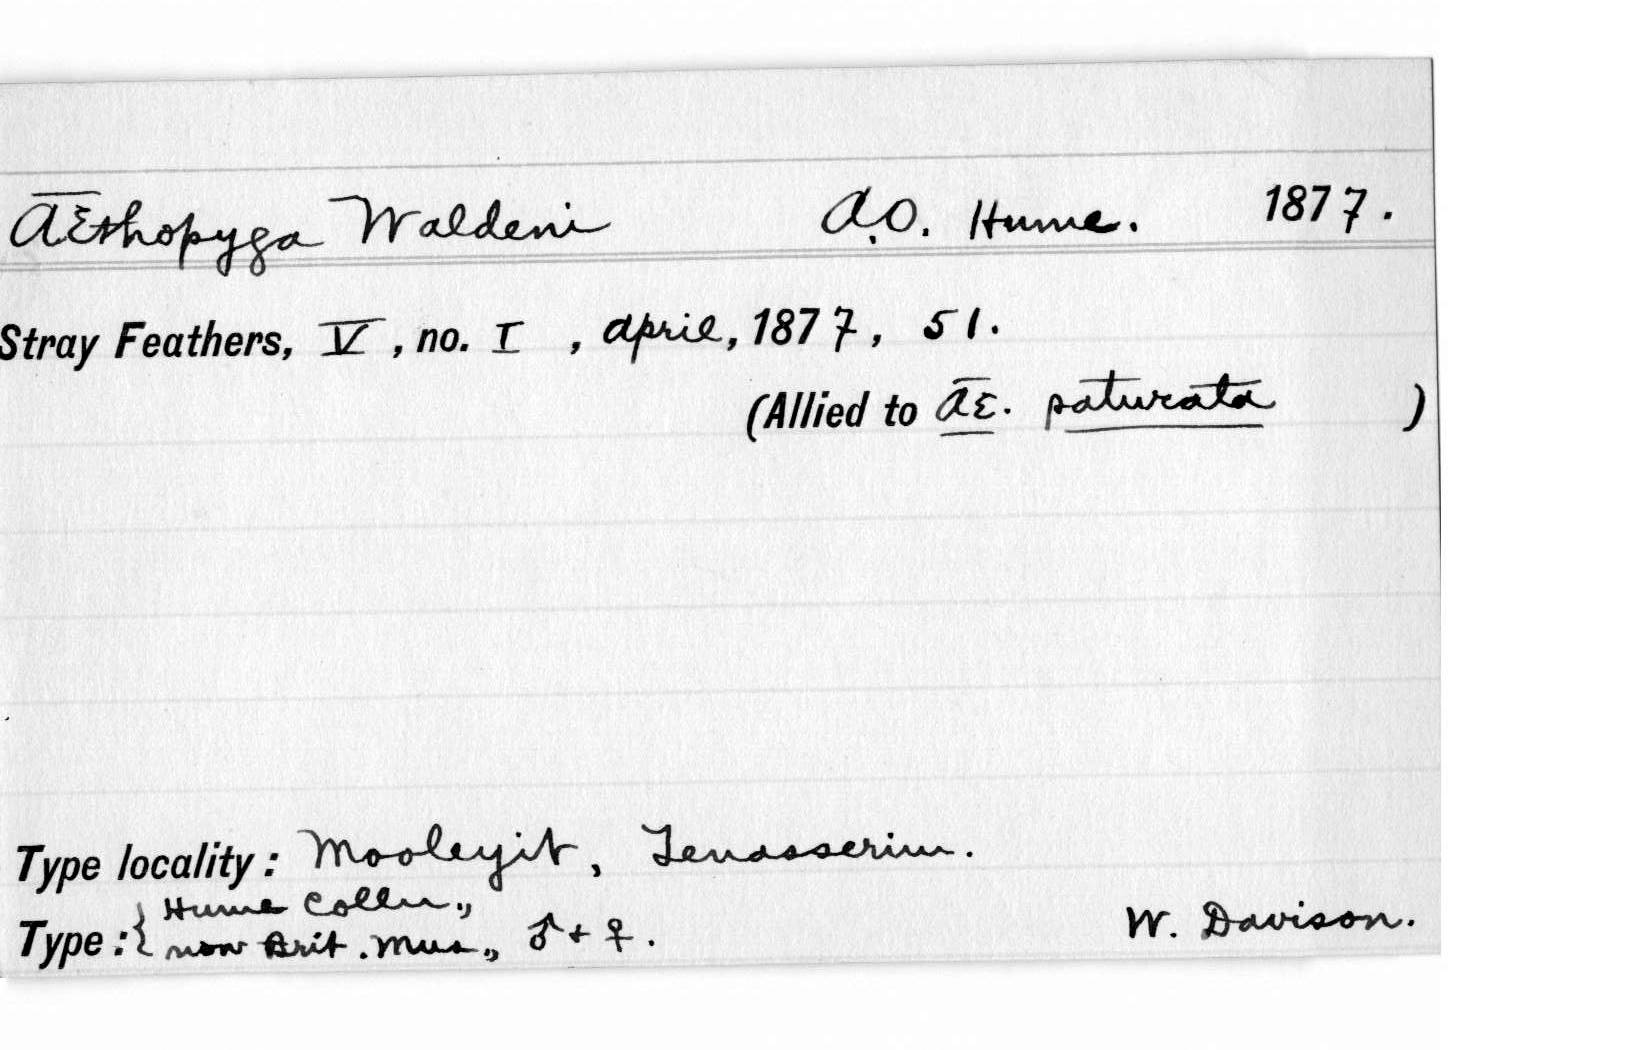 Æthopyga Waldeni A.O. Hume. 1877.
Stray Feathers, V, no. I, April, 1877, 51.
(Allied to Æ. saturata )
Type locality: Mooleyit, Tenasserim.
Type: { Hume Colln.,
now Brit. Mus., ♂ + ♀. W. Davison.